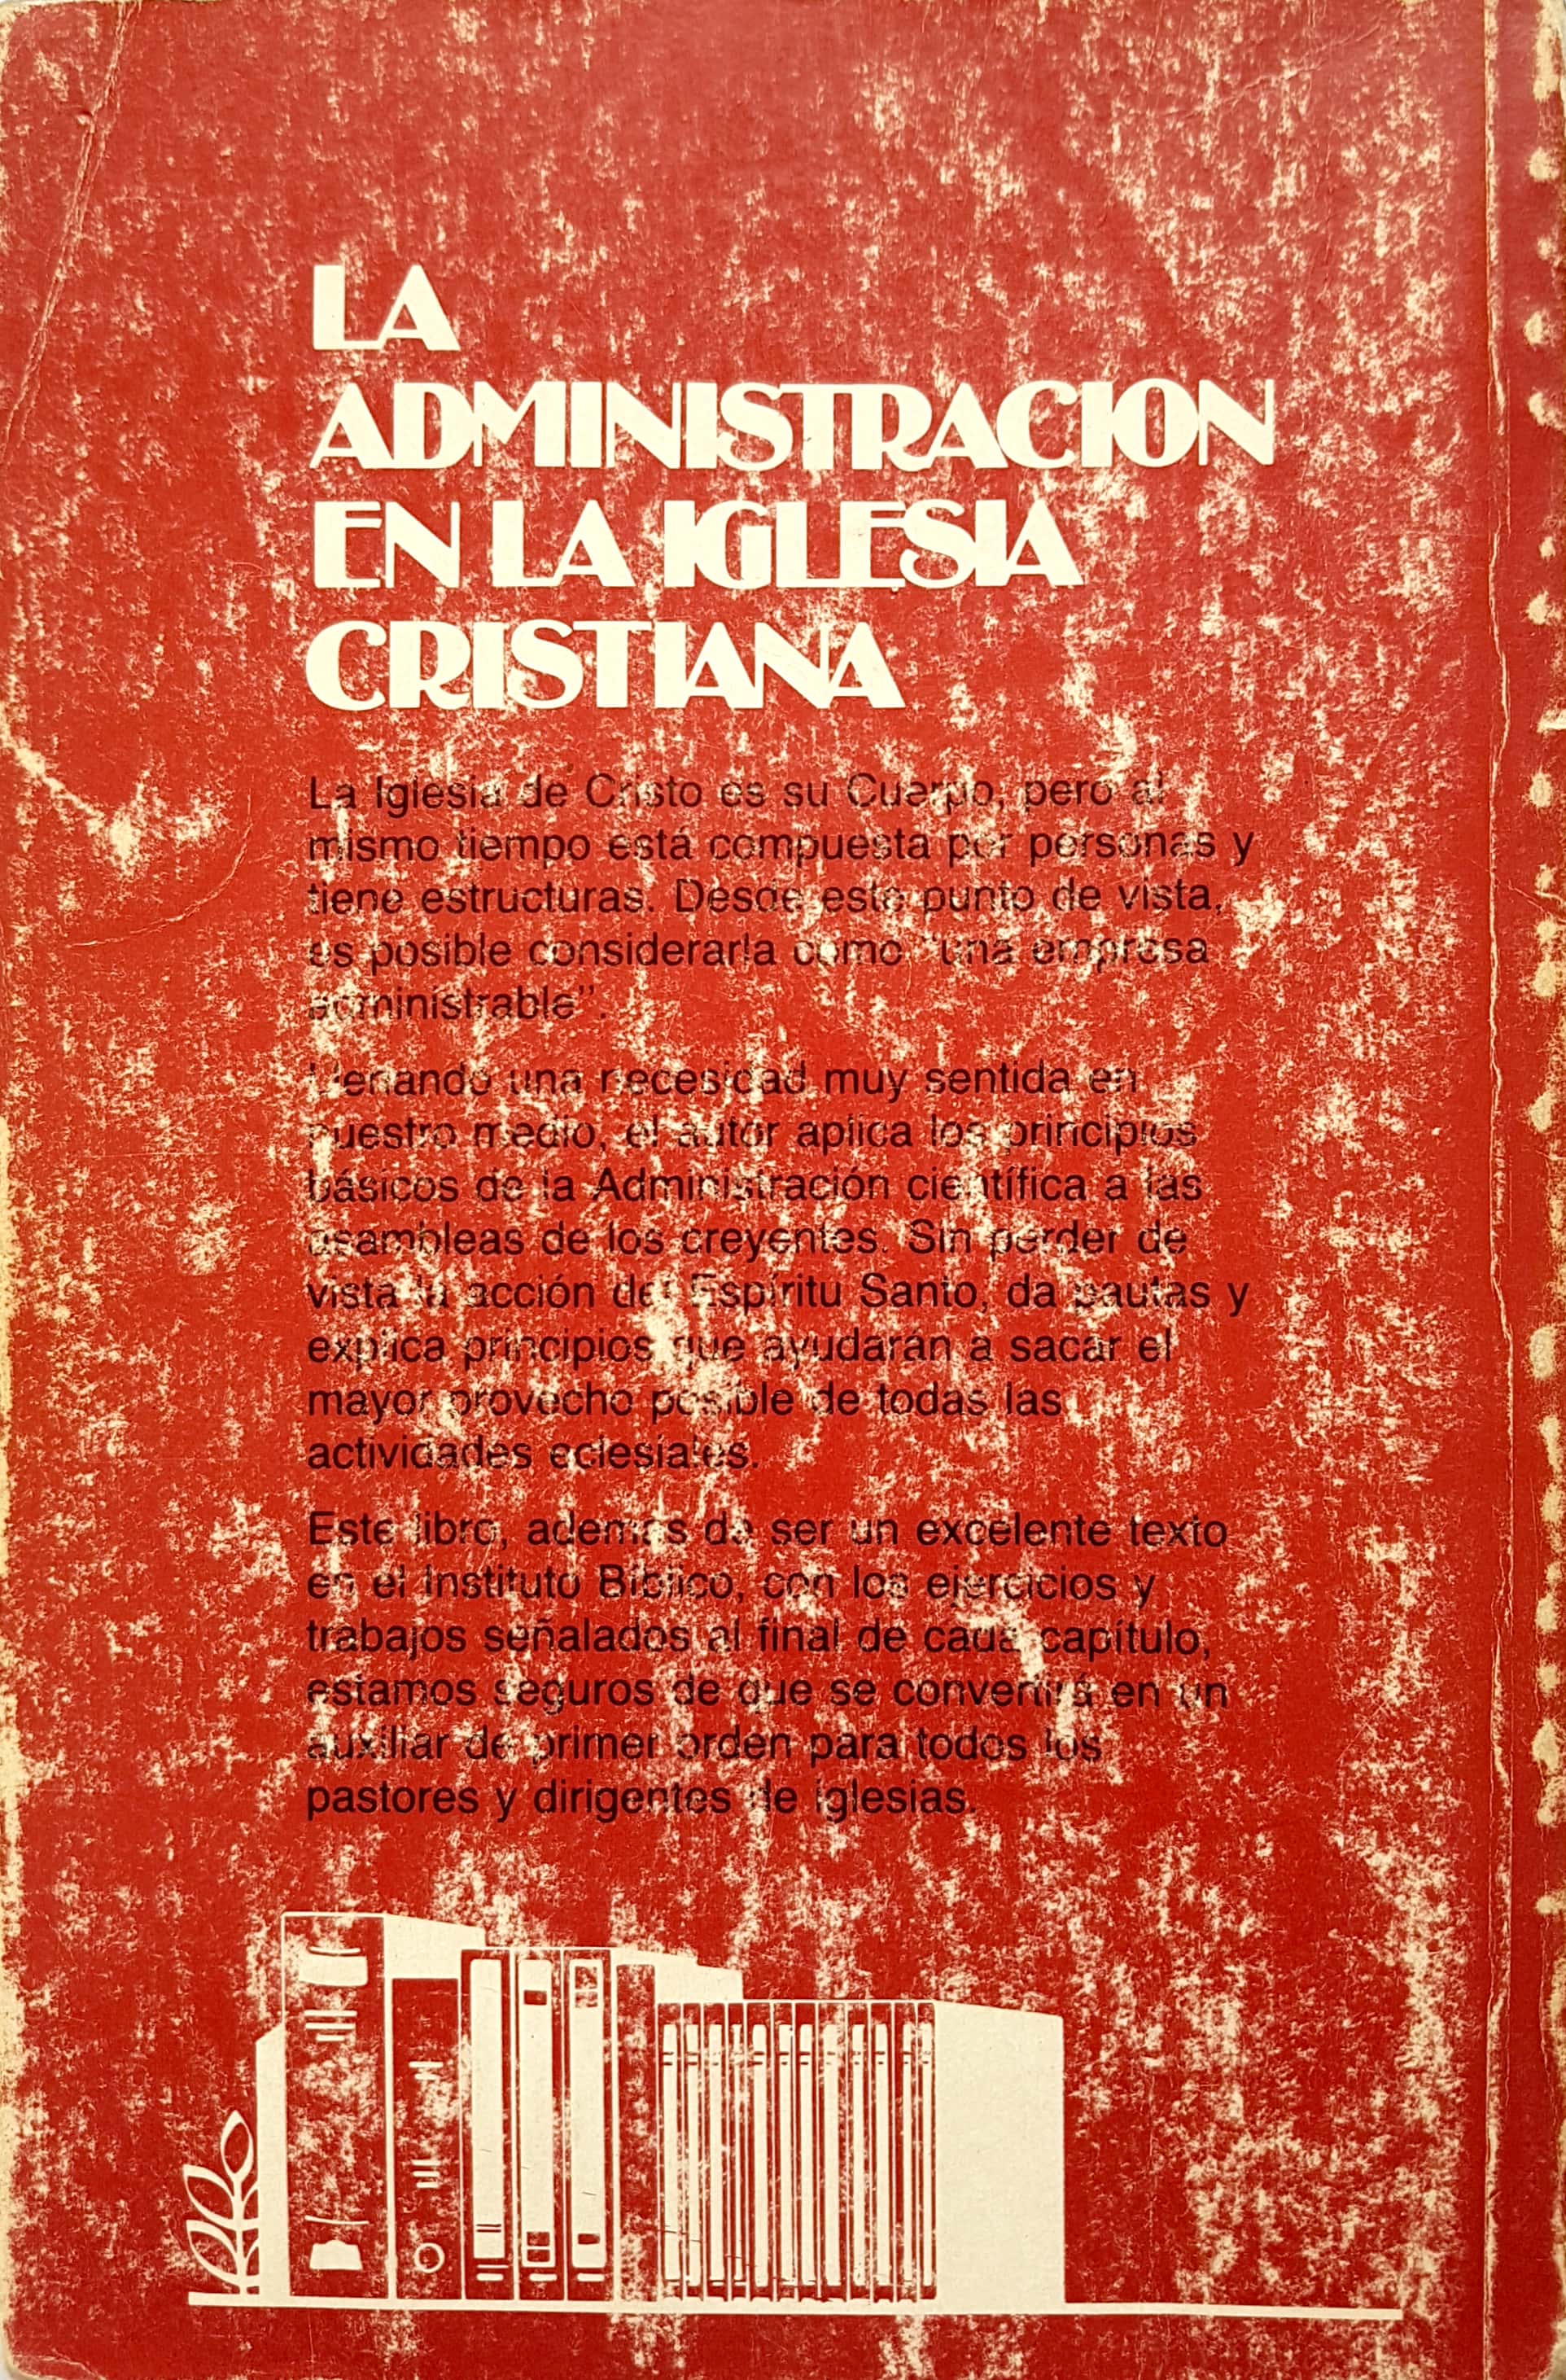 LA
ADMINISTRACION
EN LA IGLESIA
CRISTIANA
La Iglesia de Cristo es su Cuerpo, pero al
mismo tiempo está compuesta por personas y
tiene estructuras. Desde este punto de vista,
es posible considerarla como "una empresa
administrable".
Llenando una necesidad muy sentida en
nuestro medio, el autor aplica los principios
básicos de la Administración científica a las
asambleas de los creyentes. Sin perder de
vista la acción del Espíritu Santo, da pautas y
explica principios que ayudarán a sacar el
mayor provecho posible de todas las
actividades eclesiales.
Este libro, además de ser un excelente texto
en el Instituto Bíblico, con los ejercicios y
trabajos señalados al final de cada capítulo,
estamos seguros de que se convertirá en un
auxiliar de primer orden para todos los
pastores y dirigentes de iglesias.